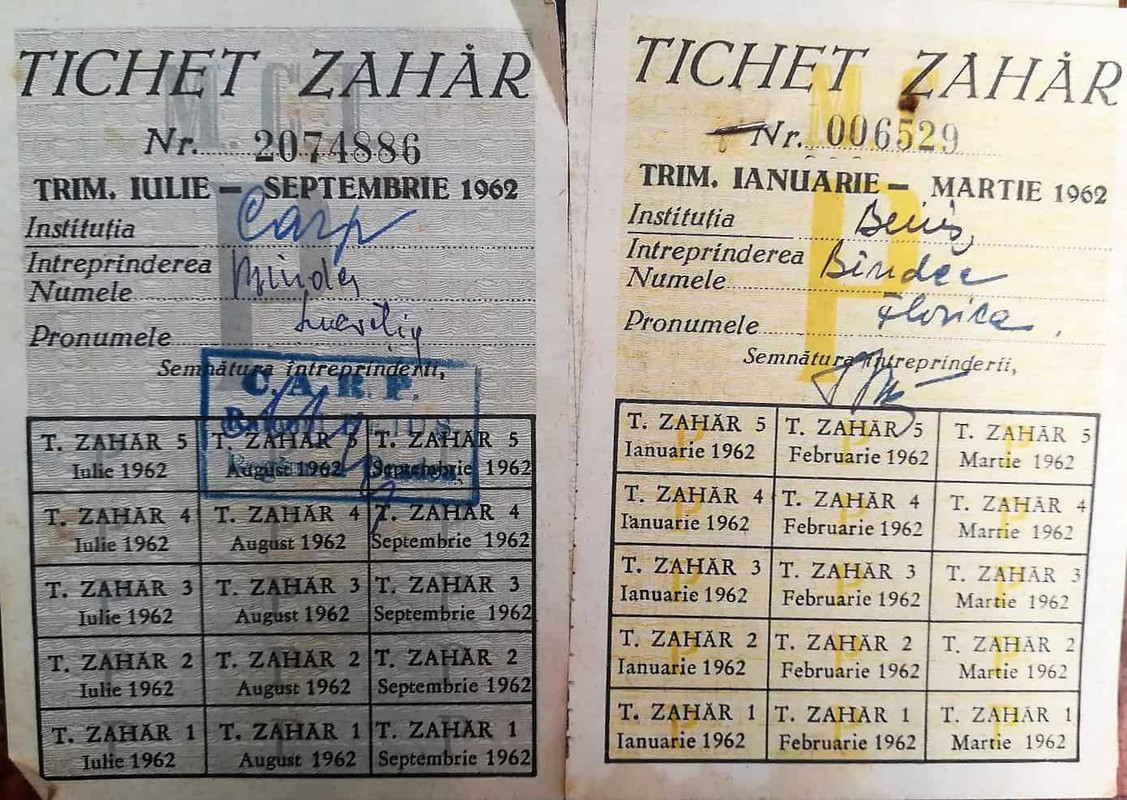 TICHET ZAHĂR
Nr. 2074886
TRIM. IULIE — SEPTEMBRIE 1962
Instituția Carp
Intreprinderea
Numele
Pronumele
Semnătura întreprinderii,
C.A.R.P.
T. ZAHĂR 5 T. ZAHĂR 5 T. ZAHĂR 5
Iulie 1962 August 1962 Septembrie 1962
T. ZAHĂR 4 T. ZAHĂR 4 T. ZAHĂR 4
Iulie 1962 August 1962 Septembrie 1962
T. ZAHĂR 3 T. ZAHĂR 3 T. ZAHĂR 3
Iulie 1962 August 1962 Septembrie 1962
T. ZAHĂR 2 T. ZAHĂR 2 T. ZAHĂR 2
Iulie 1962 August 1962 Septembrie 1962
T. ZAHĂR 1 T. ZAHĂR 1 T. ZAHĂR 1
Iulie 1962 August 1962 Septembrie 1962
TICHET ZAHĂR
Nr. 006529
TRIM. IANUARIE — MARTIE 1962
Instituția Beiuș
Intreprinderea
Numele Bîndea
Pronumele Florica
Semnătura întreprinderii,
T. ZAHĂR 5 T. ZAHĂR 5 T. ZAHĂR 5
Ianuarie 1962 Februarie 1962 Martie 1962
T. ZAHĂR 4 T. ZAHĂR 4 T. ZAHĂR 4
Ianuarie 1962 Februarie 1962 Martie 1962
T. ZAHĂR 3 T. ZAHĂR 3 T. ZAHĂR 3
Ianuarie 1962 Februarie 1962 Martie 1962
T. ZAHĂR 2 T. ZAHĂR 2 T. ZAHĂR 2
Ianuarie 1962 Februarie 1962 Martie 1962
T. ZAHĂR 1 T. ZAHĂR 1 T. ZAHĂR 1
Ianuarie 1962 Februarie 1962 Martie 1962